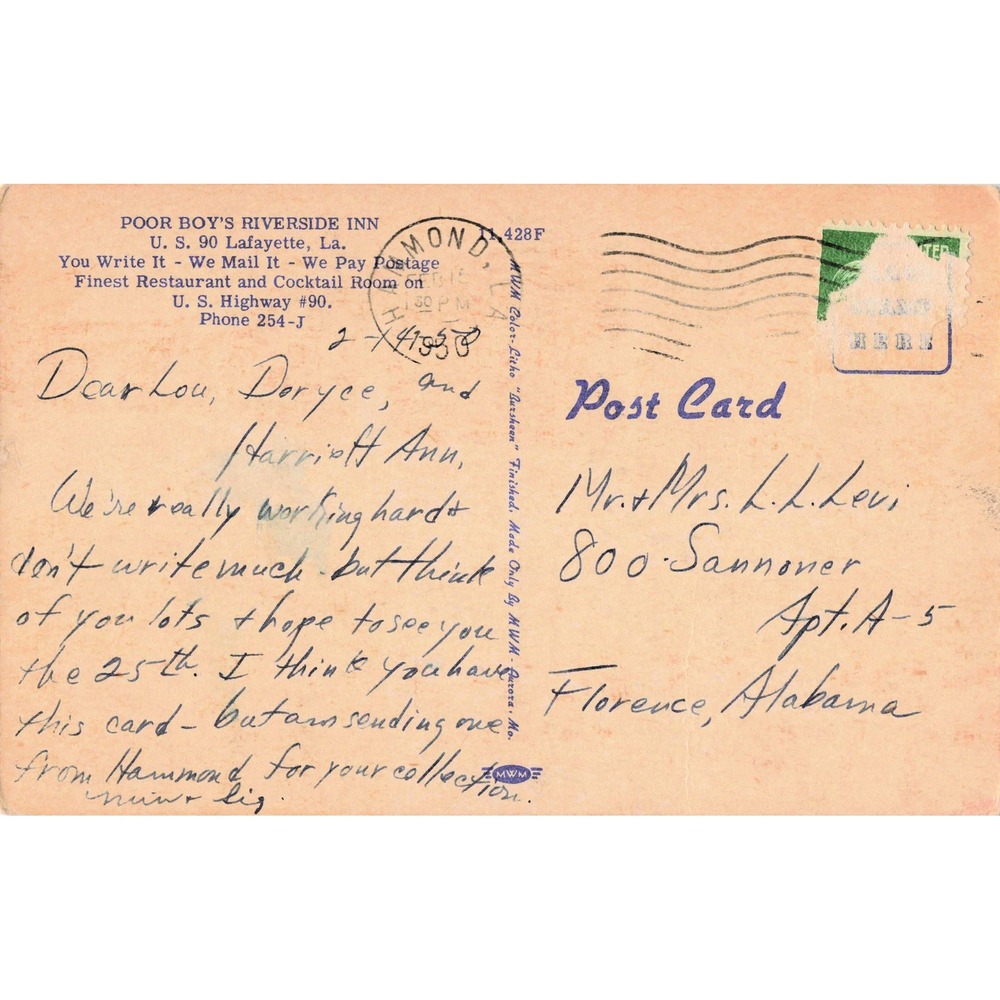 POOR BOY'S RIVERSIDE INN
U. S. 90 Lafayette, La.
You Write It - We Mail It - We Pay Postage
Finest Restaurant and Cocktail Room on
U. S. Highway #90.
Phone 254-J
11,428F
HAMMOND, LA
FEB 15
30 PM
1950
2-14-50
Dear Lou, Doryce, and
Harriett Ann,
We're really working hard +
don't write much - but think
of you lots + hope to see you
the 25th. I think you have
this card - but am sending one
from Hammond for your collection.
MWM Color-Litho "Aursheen" Finished. Made Only By MWM - Aurora, Mo.
MWM
HERE
Post Card
Mr. + Mrs. L. L. Levi
800 - Sannoner
Apt. A-5
Florence, Alabama